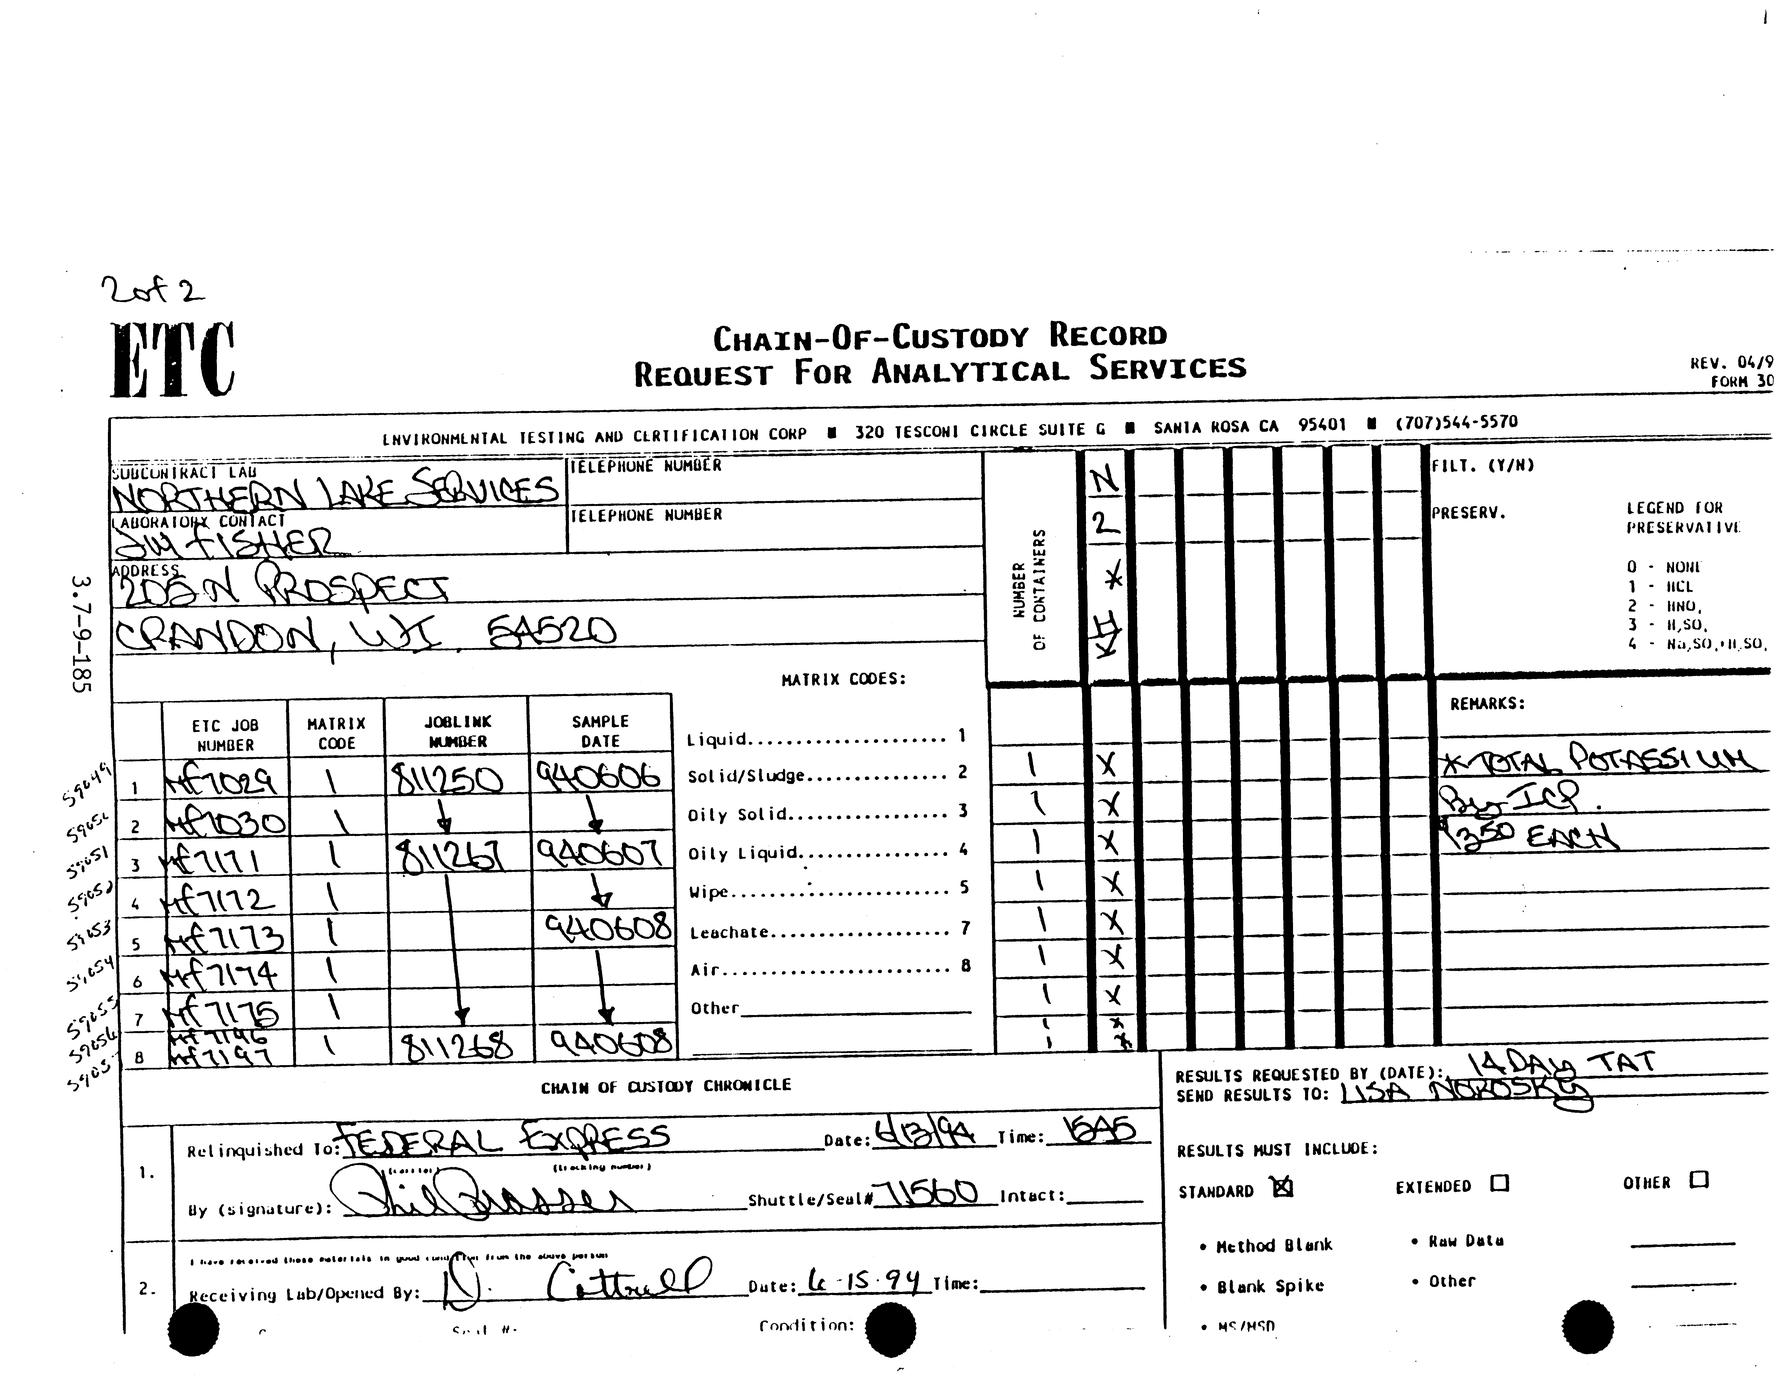 2 of 2
ETC
CHAIN-OF-CUSTODY RECORD
REQUEST FOR ANALYTICAL SERVICES
REV. 04/9
FORM 30
ENVIRONMENTAL TESTING AND CERTIFICATION CORP ■ 320 TESCONI CIRCLE SUITE G ■ SANTA ROSA CA 95401 ■ (707)544-5570
SUBCONTRACT LAB
NORTHERN LAKE SERVICES
TELEPHONE NUMBER
LABORATORY CONTACT
JIM FISHER
TELEPHONE NUMBER
ADDRESS
205 N PROSPECT
CRANDON, WI. 54520
3.7-9-185
NUMBER OF CONTAINERS
N
2
*
FILT. (Y/N)
PRESERV.
LEGEND FOR
PRESERVATIVE
0 - NONE
1 - HCL
2 - HNO,
3 - H,SO,
4 - Na,SO,+H,SO,
MATRIX CODES:
Liquid.................... 1
Solid/Sludge.............. 2
Oily Solid................ 3
Oily Liquid............... 4
Wipe...................... 5
Leachate.................. 7
Air....................... 8
Other
ETC JOB NUMBER MATRIX CODE JOBLINK NUMBER SAMPLE DATE
59049 1 Mf7029 1 811250 940606 1 X
2 Mf7030 1 1 X
59051 3 Mf7171 1 811267 940607 1 X
59052 4 Mf7172 1 1 X
59053 5 Mf7173 1 940608 1 X
59054 6 Mf7174 1 1 X
59055 7 Mf7175 1 1 X
59056 Mf7196 1 X
8 Mf7197 1 811268 940608 1 X
REMARKS:
* TOTAL POTASSIUM
By ICP.
1350 EACH
CHAIN OF CUSTODY CHRONICLE
RESULTS REQUESTED BY (DATE): 14 DAY TAT
SEND RESULTS TO: LISA NOROSKY
1.
Relinquished To: FEDERAL EXPRESS Date: 6/13/94 Time: 1545
(carrier) (tracking number)
By (signature): Shuttle/Seal# 71560 Intact:
2.
I have received these materials in good condition from the above person
Receiving Lab/Opened By: D. Cottrell Date: 6-15-94 Time:
Seal #: Condition:
RESULTS MUST INCLUDE:
STANDARD ☒ EXTENDED ☐ OTHER ☐
• Method Blank • Raw Data
• Blank Spike • Other
• MS/MSD